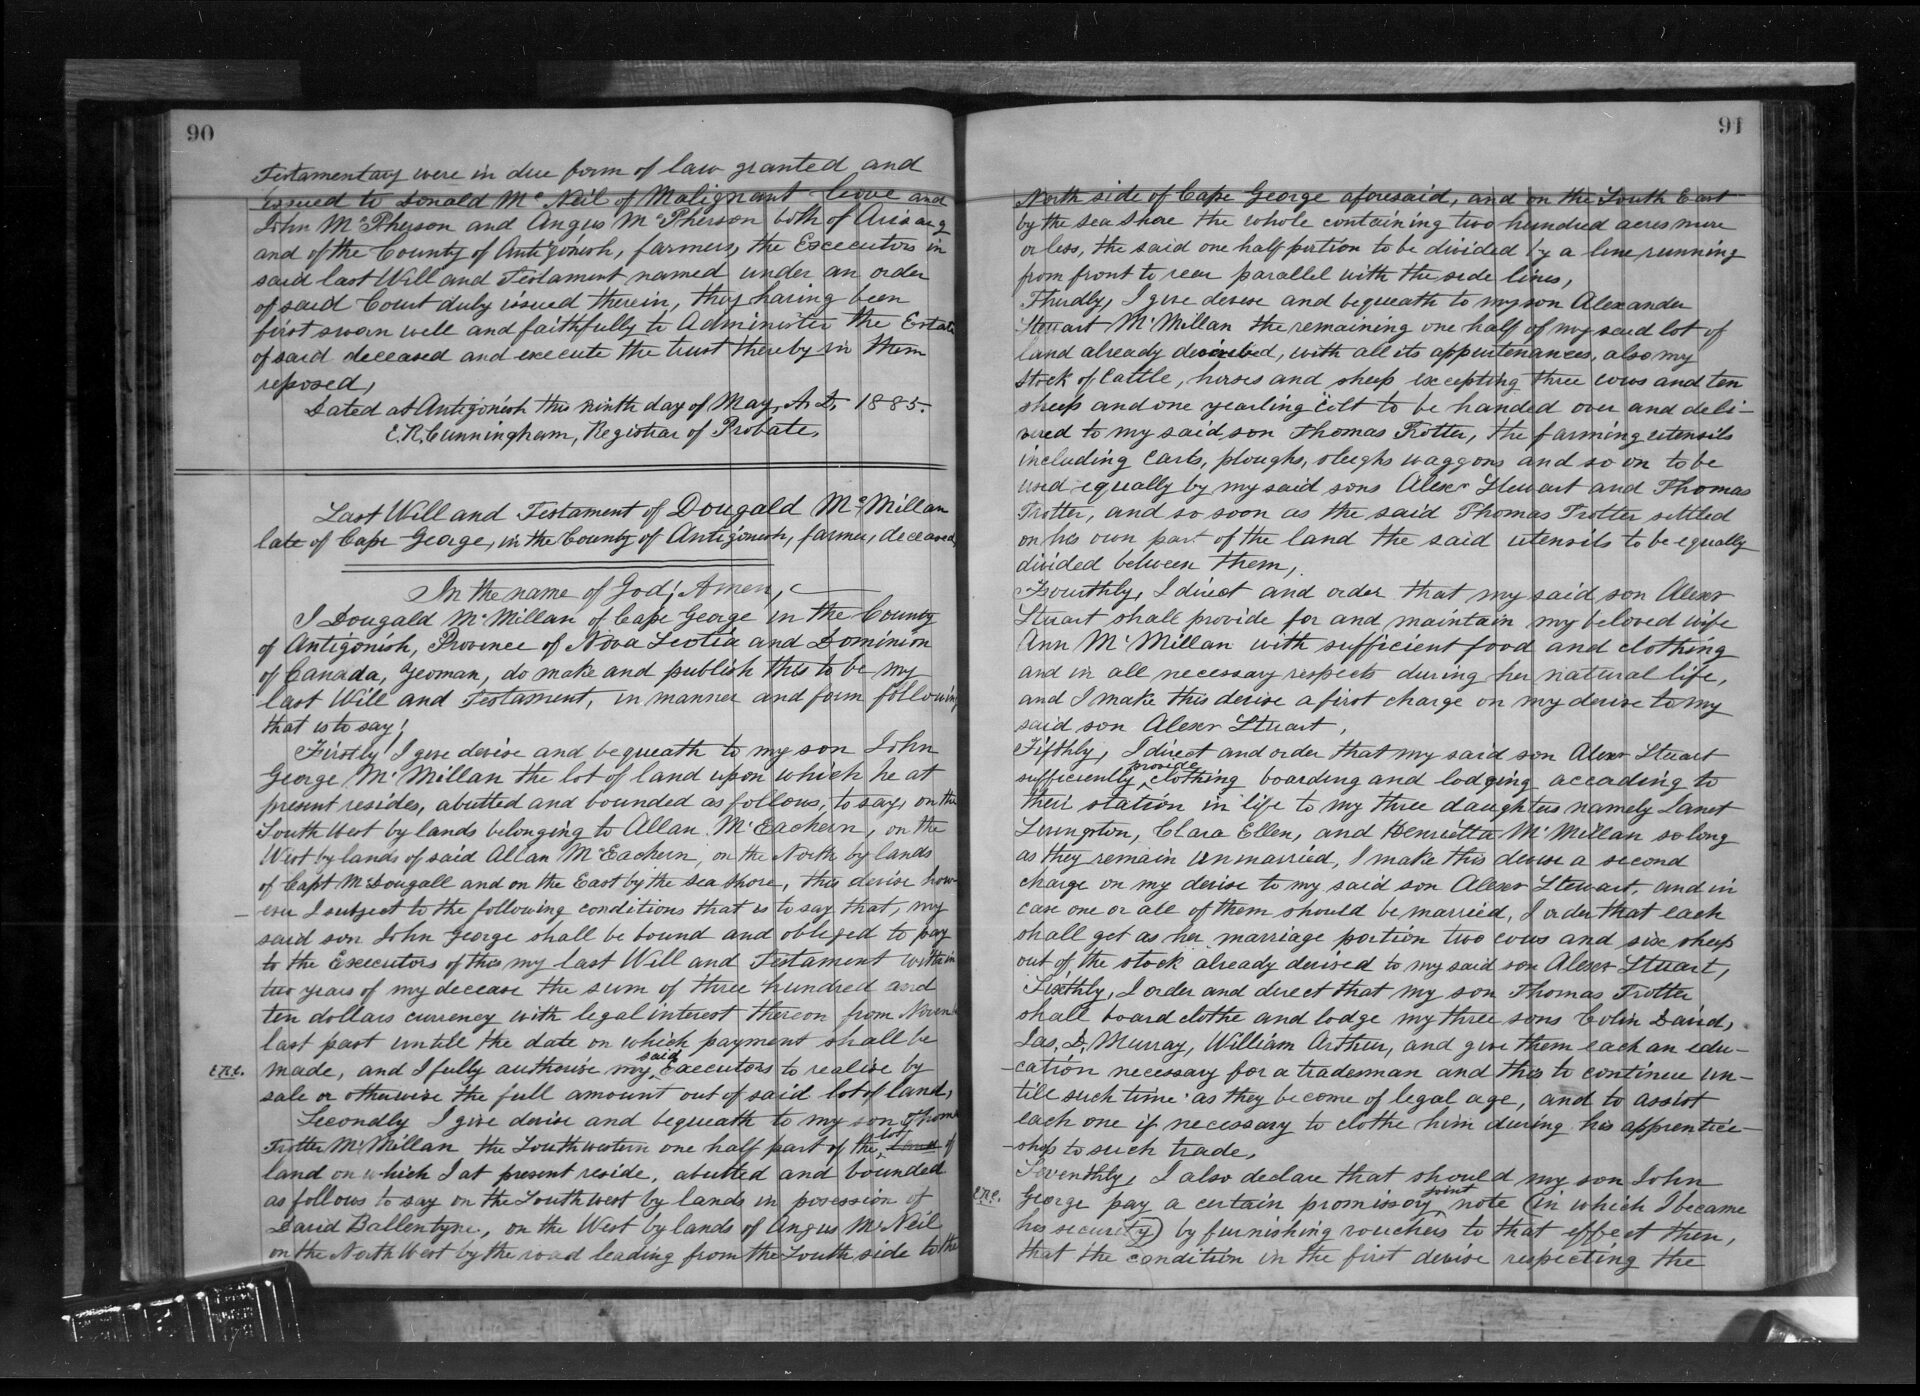 90
Testamentary were in due form of law granted and
issued to Donald Mc Neil of Malignant Cove and
John McPherson and Angus McPherson both of Arisaig
and of the County of Antigonish, farmers, the Executors in
said last Will and Testament named under an order
of said Court duly issued therein, they having been
first sworn well and faithfully to Administer the Estate
of said deceased and execute the trust thereby in them
reposed,
Dated at Antigonish this ninth day of May, A.D. 1885.
E.R. Cunningham, Registrar of Probate,
Last Will and Testament of Dougald McMillan
late of Cape George, in the County of Antigonish, farmer, deceased,
In the name of God; Amen,
I Dougald McMillan of Cape George in the County
of Antigonish, Province of Nova Scotia and Dominion
of Canada, Yeoman, do make and publish this to be my
last Will and Testament, in manner and form following
that is to say;
Firstly I give devise and bequeath to my son John
George McMillan the lot of land upon which he at
present resides, abutted and bounded as follows, to say, on the
South West by lands belonging to Allan McEachern, on the
West by lands of said Allan McEachern, on the North by lands
of Capt McDougall and on the East by the Sea shore, this devise how-
ever I subject to the following conditions that is to say that, my
said son John George shall be bound and obliged to pay
to the Executors of this my last Will and Testament within
two years of my decease the sum of three hundred and
ten dollars currency with legal interest thereon from Novemb
last past untill the date on which payment shall be
E.R.C. made, and I fully authorise my said Executors to realise by
sale or otherwise the full amount out of said lot of land,
Secondly I give devise and bequeath to my son Thomas
Trotter McMillan the Southwestern one half part of the lot land of
land on which I at present reside, abutted and bounded
as follows to say on the Southwest by lands in posession of
David Ballentyne, on the West by lands of Angus McNeil
on the North West by the road leading from the South side to the
91
North side of Cape George aforesaid, and on the South East
by the sea shore the whole containing two hundred acres more
or less, the said one half portion to be divided by a line running
from front to rear parallel with the side lines,
Thirdly, I give devise and bequeath to my son Alexander
Stewart McMillan the remaining one half of my said lot of
land already described, with all its appurtenances, also my
stock of Cattle, horses and sheep excepting three cows and ten
sheep and one yearling colt to be handed over and deli-
vered to my said son Thomas Trotter, the farming utensils
including Carts, ploughs, sleighs waggons and so on to be
used equally by my said sons Alexr Stewart and Thomas
Trotter, and so soon as the said Thomas Trotter settled
on his own part of the land the said utensils to be equally
divided between them,
Fourthly, I direct and order that my said son Alexr
Stuart shall provide for and maintain my beloved wife
Ann McMillan with sufficient food and clothing
and in all necessary respects during her natural life,
and I make this devise a first charge on my devise to my
said son Alexr Stuart,
Fifthly, I direct and order that my said son Alexr Stuart
sufficiently provide clothing boarding and lodging according to
their station in life to my three daughters namely Janet
Livingston, Clara Ellen, and Henrietta McMillan so long
as they remain unmarried, I make this devise a second
charge on my devise to my said son Alexr Stewart, and in
case one or all of them should be married, I order that each
shall get as her marriage portion two cows and six sheep
out of the stock already devised to my said son Alexr Stuart,
Sixthly, I order and direct that my son Thomas Trotter
shall board clothe and lodge my three sons Colin David,
Jas. D. Murray, William Arthur, and give them each an edu-
-cation necessary for a tradesman and this to continue un-
till such time as they become of legal age, and to assist
each one if necessary to clothe him during his apprentice-
-ship to such trade,
Seventhly, I also declare that should my son John
E.R.C. George pay a certain promissory joint note (in which I became
his security) by furnishing vouchers to that effect then,
that the condition in the first devise respecting the